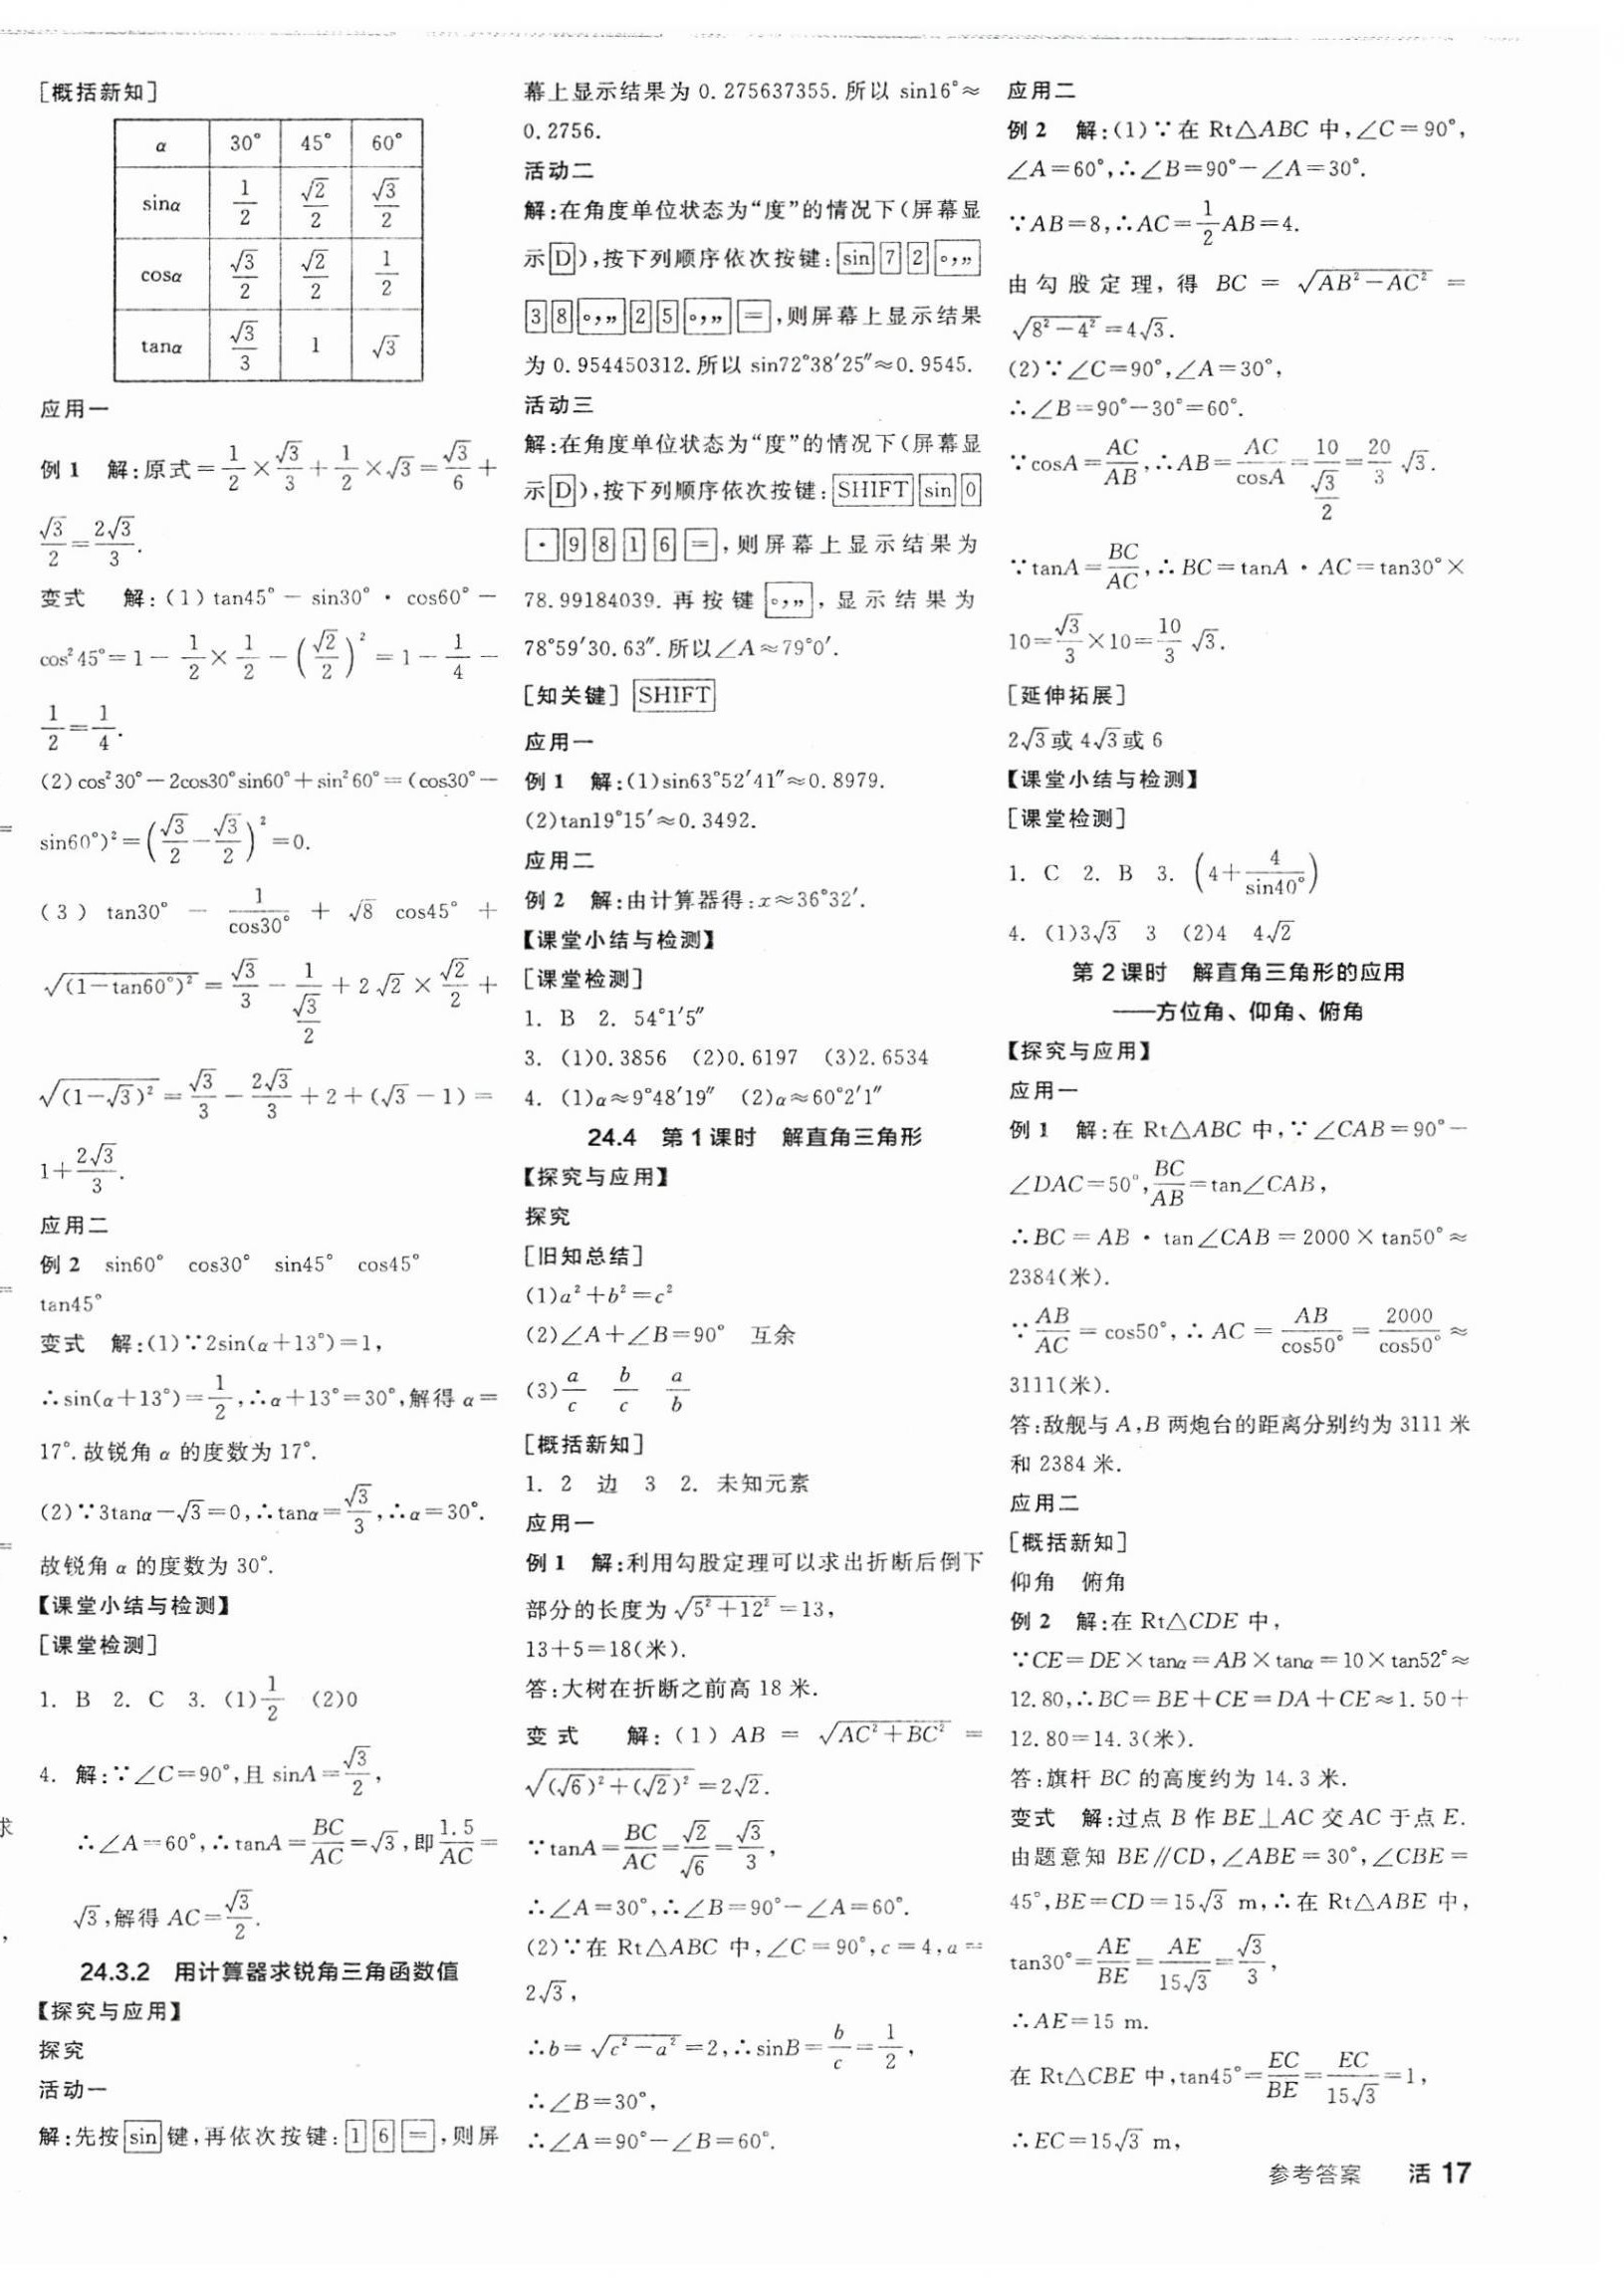 [概括新知]
α 30° 45° 60°
sinα 1/2 √2/2 √3/2
cosα √3/2 √2/2 1/2
tanα √3/3 1 √3
应用一
例1 解:原式=1/2×√3/3+1/2×√3=√3/6+
√3/2=2√3/3.
变式 解:(1)tan45°-sin30°·cos60°-
cos²45°=1-1/2×1/2-(√2/2)²=1-1/4-
1/2=1/4.
(2)cos²30°-2cos30°sin60°+sin²60°=(cos30°-
sin60°)²=(√3/2-√3/2)²=0.
(3) tan30° - 1/cos30° + √8 cos45° +
√((1-tan60°)²)=√3/3-1/(√3/2)+2√2×√2/2+
√((1-√3)²)=√3/3-2√3/3+2+(√3-1)=
1+2√3/3.
应用二
例2 sin60° cos30° sin45° cos45°
tan45°
变式 解:(1)∵2sin(α+13°)=1,
∴sin(α+13°)=1/2,∴α+13°=30°,解得α=
17°.故锐角α的度数为17°.
(2)∵3tanα-√3=0,∴tanα=√3/3,∴α=30°.
故锐角α的度数为30°.
【课堂小结与检测】
[课堂检测]
1. B 2. C 3. (1)1/2 (2)0
4. 解:∵∠C=90°,且sinA=√3/2,
∴∠A=60°,∴tanA=BC/AC=√3,即1.5/AC=
√3,解得AC=√3/2.
24.3.2 用计算器求锐角三角函数值
【探究与应用】
探究
活动一
解:先按[sin]键,再依次按键:[1][6][=],则屏
幕上显示结果为0.275637355.所以sin16°≈
0.2756.
活动二
解:在角度单位状态为“度”的情况下(屏幕显
示[D]),按下列顺序依次按键:[sin][7][2][°,,,]
[3][8][°,,,][2][5][°,,,][=],则屏幕上显示结果
为0.954450312.所以sin72°38′25″≈0.9545.
活动三
解:在角度单位状态为“度”的情况下(屏幕显
示[D]),按下列顺序依次按键:[SHIFT][sin][0]
[·][9][8][1][6][=],则屏幕上显示结果为
78.99184039.再按键[°,,,],显示结果为
78°59′30.63″.所以∠A≈79°0′.
[知关键] [SHIFT]
应用一
例1 解:(1)sin63°52′41″≈0.8979.
(2)tan19°15′≈0.3492.
应用二
例2 解:由计算器得:x≈36°32′.
【课堂小结与检测】
[课堂检测]
1. B 2. 54°1′5″
3. (1)0.3856 (2)0.6197 (3)2.6534
4. (1)α≈9°48′19″ (2)α≈60°2′1″
24.4 第1课时 解直角三角形
【探究与应用】
探究
[旧知总结]
(1)a²+b²=c²
(2)∠A+∠B=90° 互余
(3)a/c b/c a/b
[概括新知]
1. 2 边 3 2. 未知元素
应用一
例1 解:利用勾股定理可以求出折断后倒下
部分的长度为√(5²+12²)=13,
13+5=18(米).
答:大树在折断之前高18米.
变式 解:(1)AB=√(AC²+BC²)=
√((√6)²+(√2)²)=2√2.
∵tanA=BC/AC=√2/√6=√3/3,
∴∠A=30°,∴∠B=90°-∠A=60°.
(2)∵在Rt△ABC中,∠C=90°,c=4,a=
2√3,
∴b=√(c²-a²)=2,∴sinB=b/c=1/2,
∴∠B=30°,
∴∠A=90°-∠B=60°.
应用二
例2 解:(1)∵在Rt△ABC中,∠C=90°,
∠A=60°,∴∠B=90°-∠A=30°.
∵AB=8,∴AC=1/2AB=4.
由勾股定理,得BC=√(AB²-AC²)=
√(8²-4²)=4√3.
(2)∵∠C=90°,∠A=30°,
∴∠B=90°-30°=60°.
∵cosA=AC/AB,∴AB=AC/cosA=10/(√3/2)=20/3√3.
∵tanA=BC/AC,∴BC=tanA·AC=tan30°×
10=√3/3×10=10/3√3.
[延伸拓展]
2√3或4√3或6
【课堂小结与检测】
[课堂检测]
1. C 2. B 3. (4+4/sin40°)
4. (1)3√3 3 (2)4 4√2
第2课时 解直角三角形的应用
——方位角、仰角、俯角
【探究与应用】
应用一
例1 解:在Rt△ABC中,∵∠CAB=90°-
∠DAC=50°,BC/AB=tan∠CAB,
∴BC=AB·tan∠CAB=2000×tan50°≈
2384(米).
∵AB/AC=cos50°,∴AC=AB/cos50°=2000/cos50°≈
3111(米).
答:敌舰与A,B两炮台的距离分别约为3111米
和2384米.
应用二
[概括新知]
仰角 俯角
例2 解:在Rt△CDE中,
∵CE=DE×tanα=AB×tanα=10×tan52°≈
12.80,∴BC=BE+CE=DA+CE≈1.50+
12.80=14.3(米).
答:旗杆BC的高度约为14.3米.
变式 解:过点B作BE⊥AC交AC于点E.
由题意知BE∥CD,∠ABE=30°,∠CBE=
45°,BE=CD=15√3 m,∴在Rt△ABE中,
tan30°=AE/BE=AE/15√3=√3/3,
∴AE=15 m.
在Rt△CBE中,tan45°=EC/BE=EC/15√3=1,
∴EC=15√3 m,
参考答案 活17